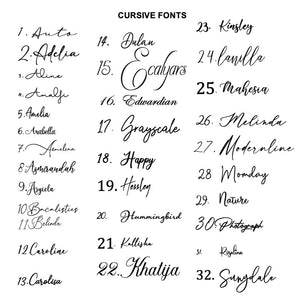 CURSIVE FONTS
1. Auto
2. Adelia
3. Aline
4. Analfi
5. Amelia
6. Arabella
7. Amelina
8. Asmirandah
9. Asyiela
10. Bacalisties
11. Belinda
12. Caroline
13. Carolisa
14. Dulan
15. Ecalyars
16. Edwardian
17. Grayscale
18. Happy
19. Hossley
20. Hummingbird
21. Kallisha
22. Khatija
23. Kinsley
24. lavilla
25. Mahesia
26. Melinda
27. Modernline
28. Monday
29. Nature
30. Photograph
31.
32. Sunydale